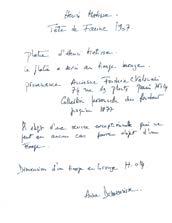 Henri Matisse
Tête de Faune 1907
plâtre d'Henri Matisse
ce plâtre a servi au tirage bronze.
provenance Ancienne Fonderie Valsuani
74 rue des plants Paris
Collection personnelle du fondeur
jusqu'en 1977
Il s'agit d'une œuvre exceptionnelle qui ne
fut en aucun cas pièce objet d'un
tirage.
Dimension d'un tirage en bronze H. 0,14